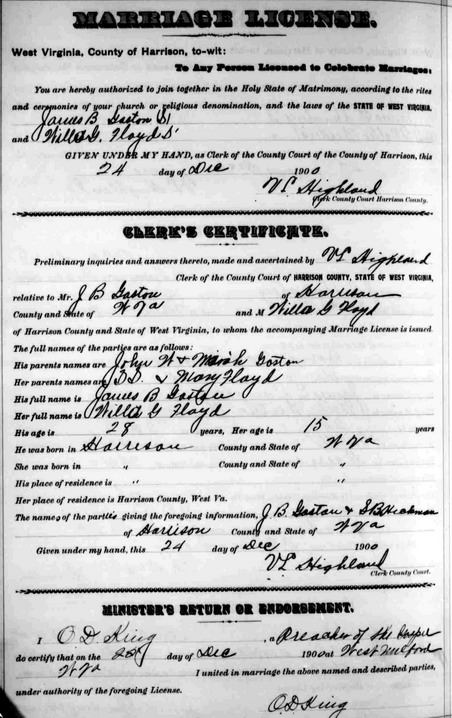 MARRIAGE LICENSE.
West Virginia, County of Harrison, to-wit:
To Any Person Licensed to Celebrate Marriages:
You are hereby authorized to join together in the Holy State of Matrimony, according to the rites
and ceremonies of your church or religious denomination, and the laws of the STATE OF WEST VIRGINIA,
James B Gaston
and Willa G. Floyd
GIVEN UNDER MY HAND, as Clerk of the County Court of the County of Harrison, this
24 day of Dec 1900
V L Highland
Clerk County Court Harrison County.
CLERK'S CERTIFICATE.
Preliminary inquiries and answers thereto, made and ascertained by V L Highland
Clerk of the County Court of HARRISON COUNTY, STATE OF WEST VIRGINIA,
relative to Mr. J B Gaston of Harrison
County and State of W Va and M Willa G Floyd
of Harrison County and State of West Virginia, to whom the accompanying Marriage License is issued.
The full names of the parties are as follows:
His parents names are John W & Gaston
Her parents names are D.D. & Mary Floyd
His full name is James B Gaston
Her full name is Willa G Floyd
His age is 28 years, Her age is 15 years
He was born in Harrison County and State of W Va
She was born in " County and State of "
His place of residence is " "
Her place of residence is Harrison County, West Va.
The names of the parties giving the foregoing information, J B Gaston & S B Hickman
of Harrison County and State of W Va
Given under my hand, this 24 day of Dec 1900
V L Highland
Clerk County Court.
MINISTER'S RETURN OR ENDORSEMENT.
I O D King a Preacher of the Gospel
do certify that on the day of Dec 1900 at West Milford
W Va I united in marriage the above named and described parties,
under authority of the foregoing License.
O D King